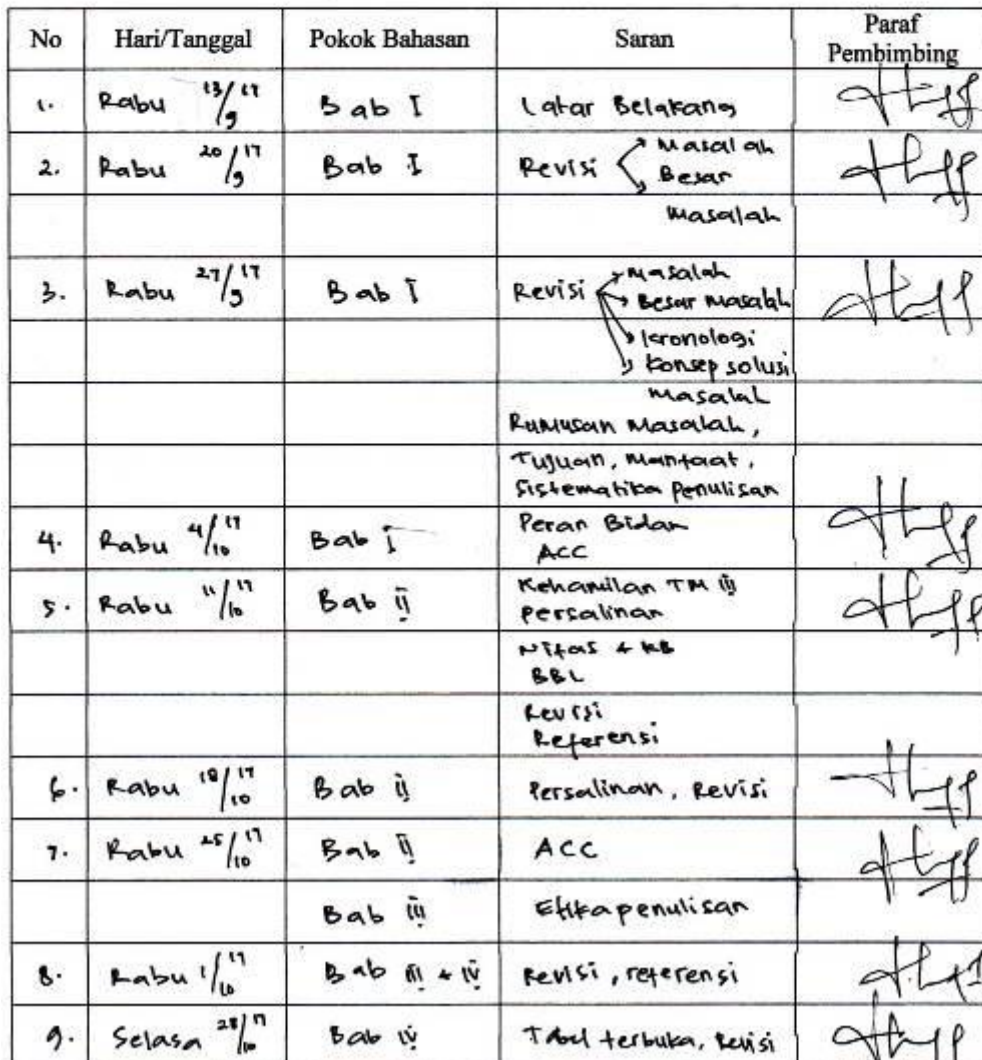 No Hari/Tanggal Pokok Bahasan Saran Paraf Pembimbing
1. Rabu 13/9 17 Bab I Latar Belakang
2. Rabu 20/9 17 Bab I Revisi Masalah
Besar
Masalah
3. Rabu 27/9 17 Bab I Revisi Masalah
Besar Masalah
Kronologi
Konsep solusi
Masalah
Rumusan Masalah,
Tujuan, Manfaat,
Sistematika penulisan
4. Rabu 4/10 17 Bab I Peran Bidan
ACC
5. Rabu 11/10 17 Bab II Kehamilan TM III
Persalinan
Nifas + KB
BBL
Revisi
Referensi
6. Rabu 18/10 17 Bab II Persalinan, Revisi
7. Rabu 25/10 17 Bab II ACC
Bab III Etika penulisan
8. Rabu 1/10 17 Bab III + IV Revisi, referensi
9. Selasa 28/10 17 Bab IV Tabel terbuka, Revisi